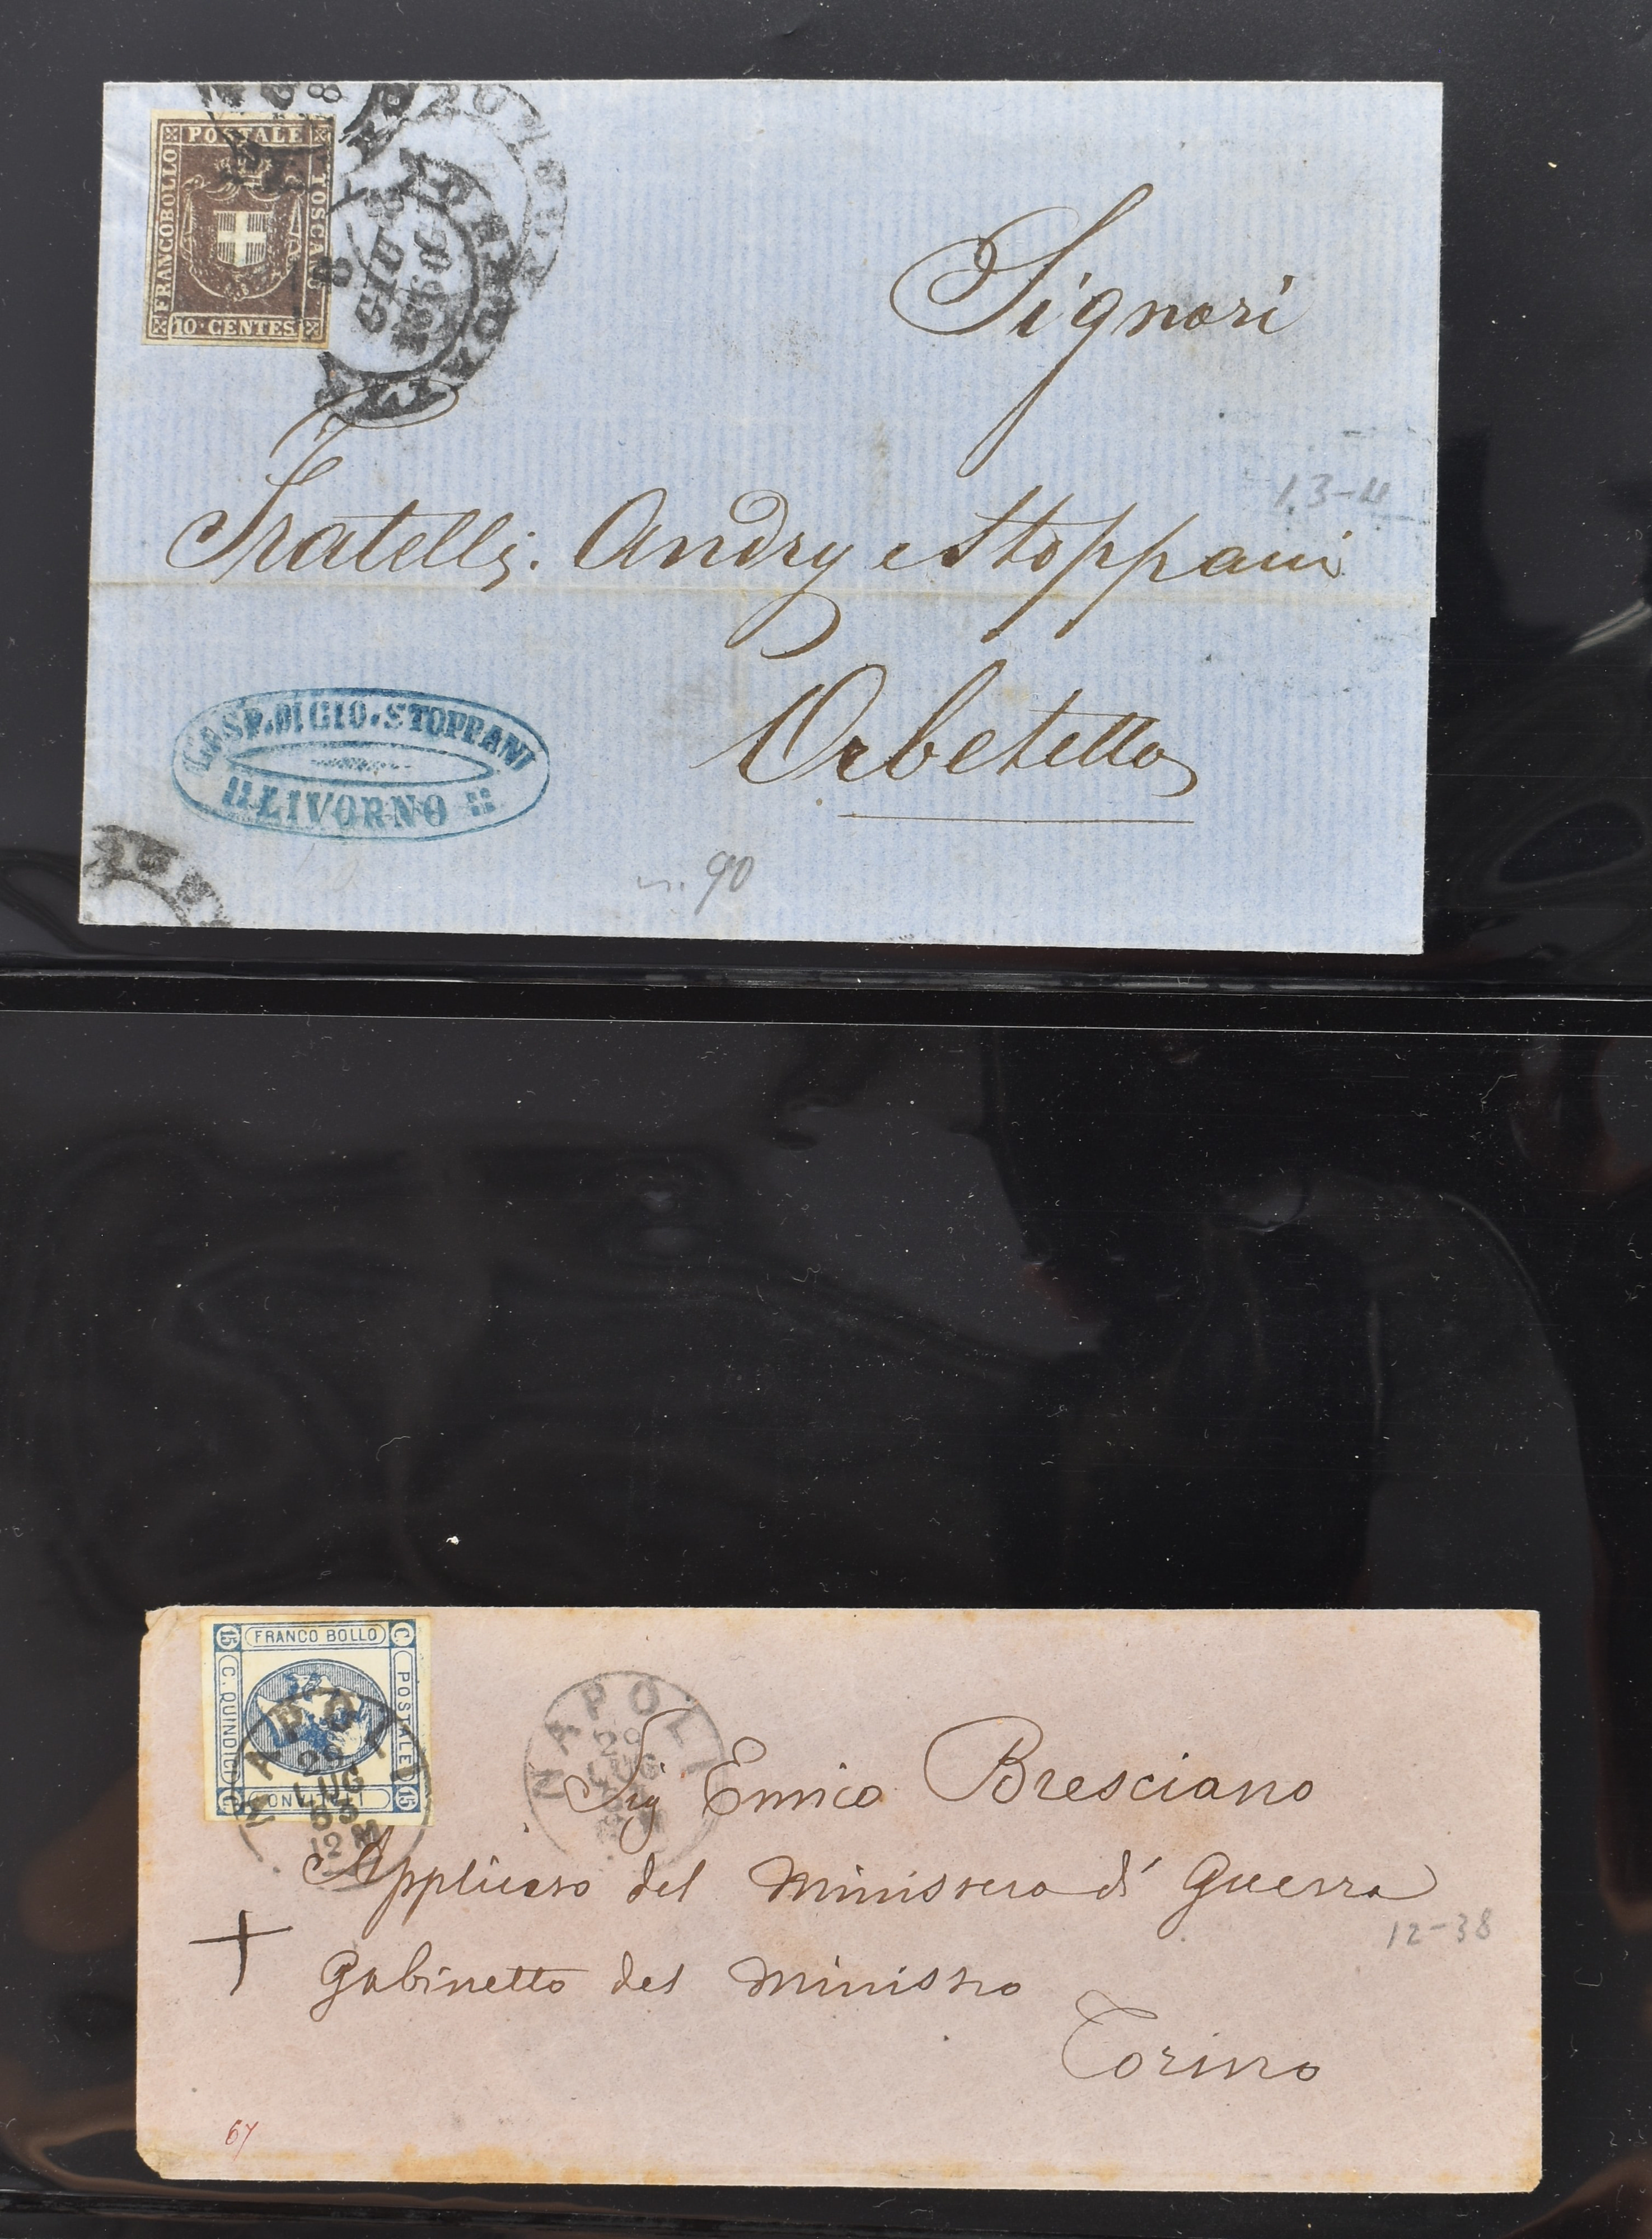 FRANCOBOLLO
POSTALE
TOSCANO
10 CENTES
8
GIU
1860
Signori
Fratelli Andry e Stoppani
13-4
Orbetello
GASP. DI GIO. STOPPANI
LIVORNO
90
15 FRANCO BOLLO C
C. QUINDICI
POSTALE
ITALIANO
15
NAPOLI
29
LUG
63
12 M
NAPOLI
29
LUG
Sig Enrico Bresciano
Applicato del Ministero di Guerra
12-38
Gabinetto del Ministro
Torino
67